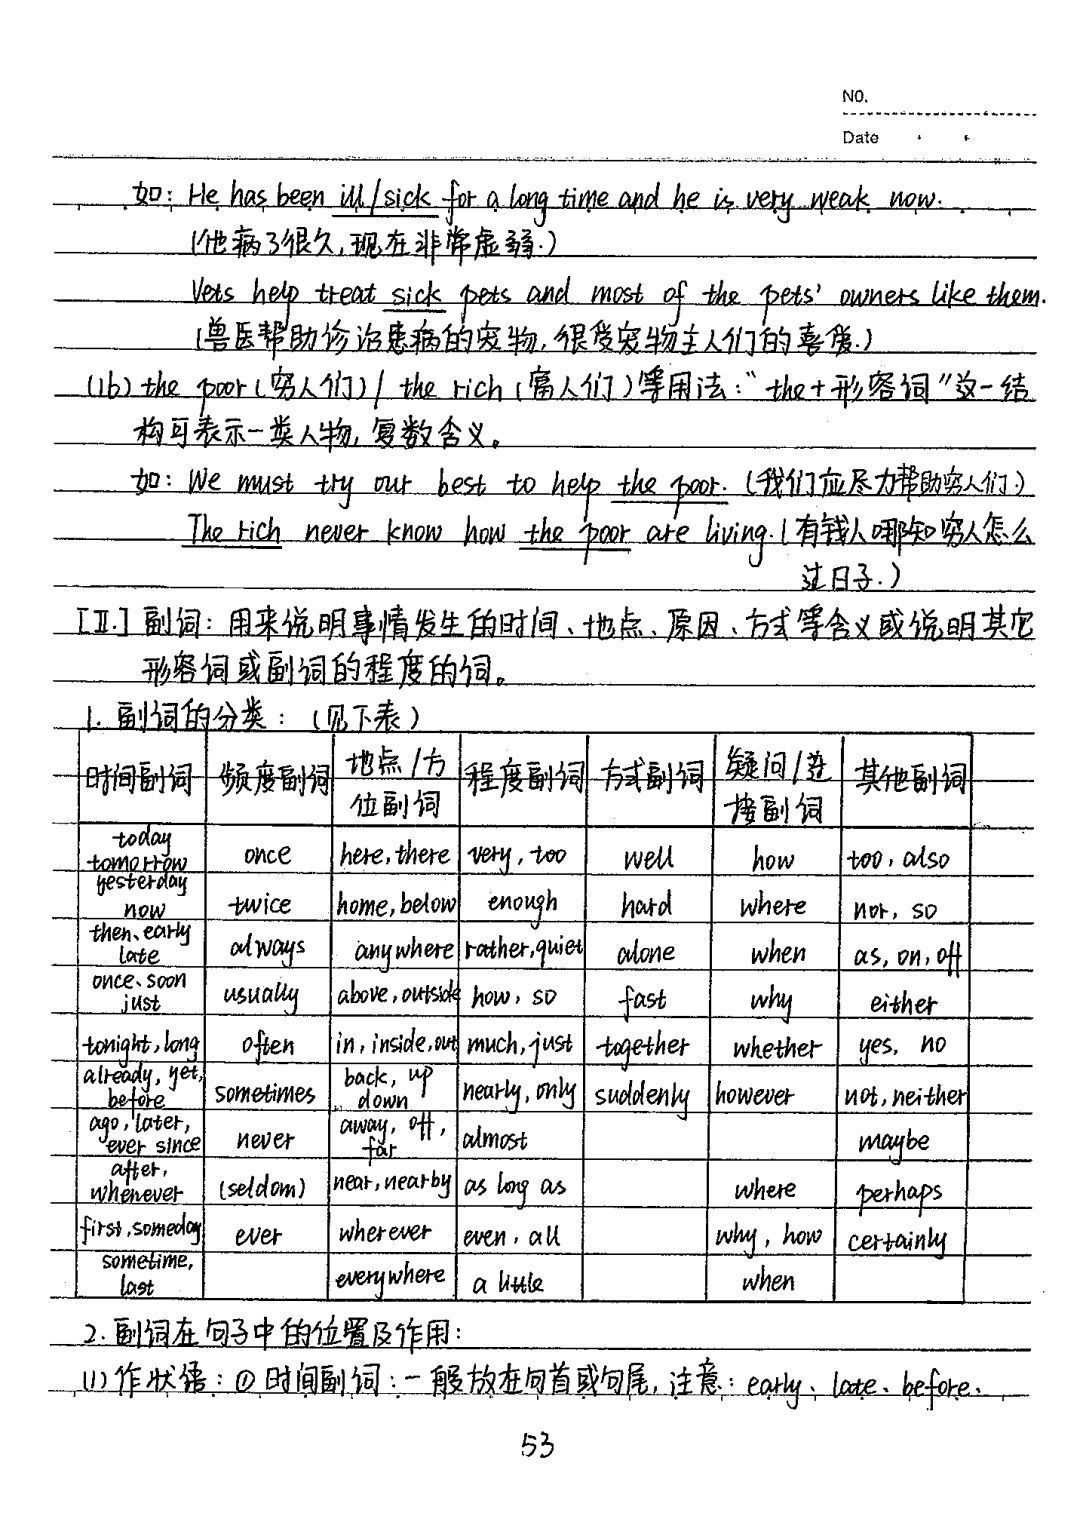 NO.
Date
如: He has been ill/sick for a long time and he is very weak now.
(他病了很久,现在非常虚弱.)
Vets help treat sick pets and most of the pets' owners like them.
(兽医帮助诊治患病的宠物,很受宠物主人们的喜爱.)
(16) the poor(穷人们)/ the rich(富人们)等用法:"the+形容词"这一结
构可表示一类人物,复数含义。
如: We must try our best to help the poor.(我们应尽力帮助穷人们.)
The rich never know how the poor are living.(有钱人哪知穷人怎么
过日子.)
[Ⅱ.] 副词: 用来说明事情发生的时间、地点、原因、方式等含义或说明其它
形容词或副词的程度的词。
1. 副词的分类: (见下表)
时间副词 频度副词 地点/方位副词 程度副词 方式副词 疑问/连接副词 其他副词
today tomorrow once here, there very, too well how too, also
yesterday now twice home, below enough hard where nor, so
then、early late always anywhere rather, quiet alone when as, on, off
once、soon just usually above, outside how, so fast why either
tonight, long often in, inside, out much, just together whether yes, no
already, yet, before sometimes back, up down nearly, only suddenly however not, neither
ago, later, ever since never away, off, far almost maybe
after, whenever (seldom) near, nearby as long as where perhaps
first, someday ever wherever even, all why, how certainly
sometime, last everywhere a little when
2. 副词在句子中的位置及作用:
(1) 作状语: ① 时间副词: 一般放在句首或句尾, 注意: early、late、before、
53